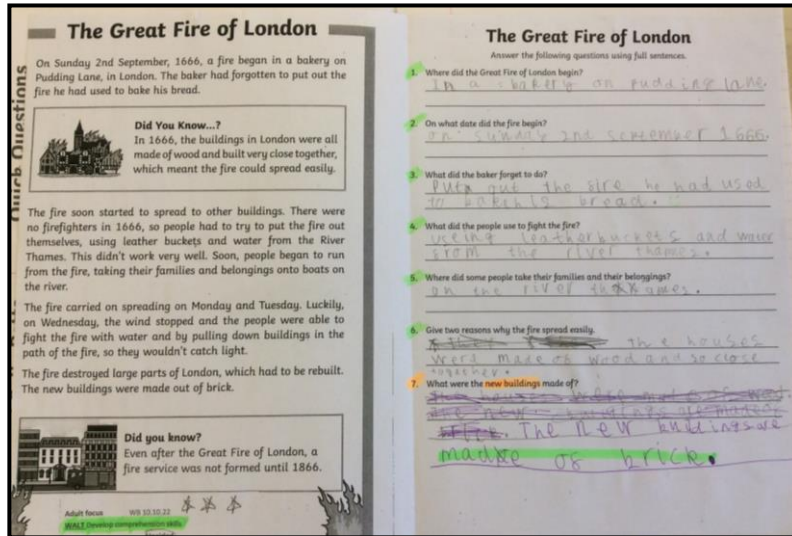 The Great Fire of London
On Sunday 2nd September, 1666, a fire began in a bakery on
Pudding Lane, in London. The baker had forgotten to put out the
fire he had used to bake his bread.
Did You Know...?
In 1666, the buildings in London were all
made of wood and built very close together,
which meant the fire could spread easily.
The fire soon started to spread to other buildings. There were
no firefighters in 1666, so people had to try to put the fire out
themselves, using leather buckets and water from the River
Thames. This didn't work very well. Soon, people began to run
from the fire, taking their families and belongings onto boats on
the river.
The fire carried on spreading on Monday and Tuesday. Luckily,
on Wednesday, the wind stopped and the people were able to
fight the fire with water and by pulling down buildings in the
path of the fire, so they wouldn't catch light.
The fire destroyed large parts of London, which had to be rebuilt.
The new buildings were made out of brick.
Did you know?
Even after the Great Fire of London, a
fire service was not formed until 1866.
Adult focus WB 10.10.22
WALT Develop comprehension skills
Questions
The Great Fire of London
Answer the following questions using full sentences.
1. Where did the Great Fire of London begin?
In a bakery on pudding lane.
2. On what date did the fire begin?
on sunday 2nd september 1666.
3. What did the baker forget to do?
Put out the fire he had used
to bake his bread.
4. What did the people use to fight the fire?
useing leather buckets and water
from the river thames.
5. Where did some people take their families and their belongings?
on the river thames.
6. Give two reasons why the fire spread easily.
the houses
were made of wood and so close
together.
7. What were the new buildings made of?
The new buildings are
made of brick.